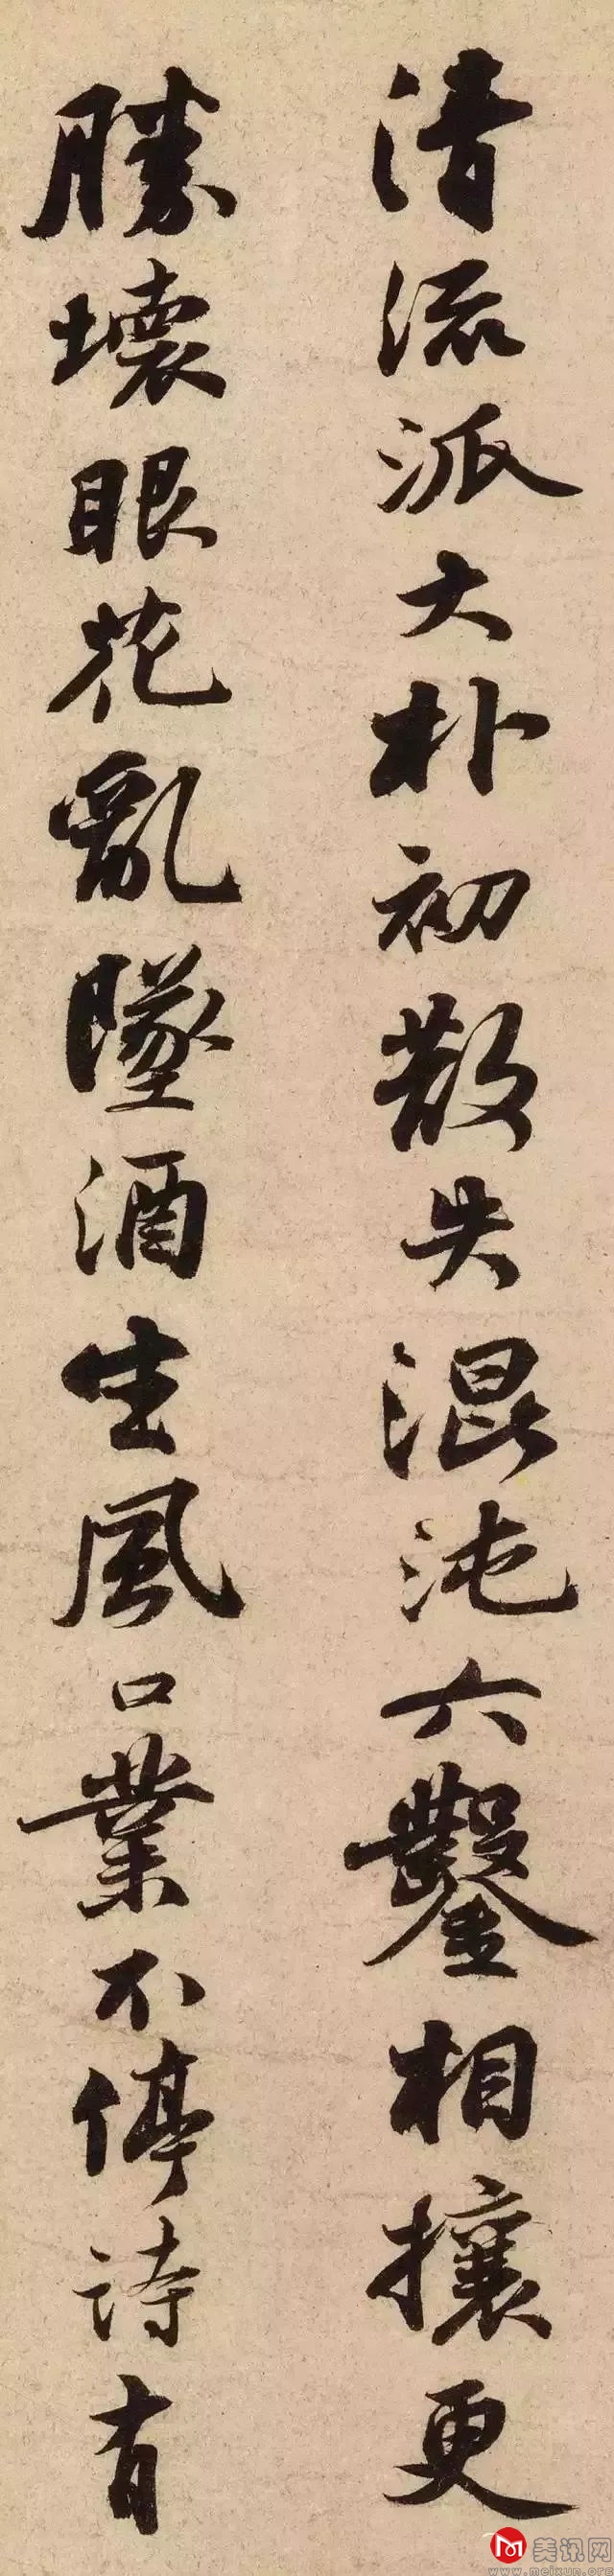 清流派大朴初散失混沌六鑿相攘更
勝壞眼花亂墜酒生風口業不停詩有
美讯网
www.meixun.org